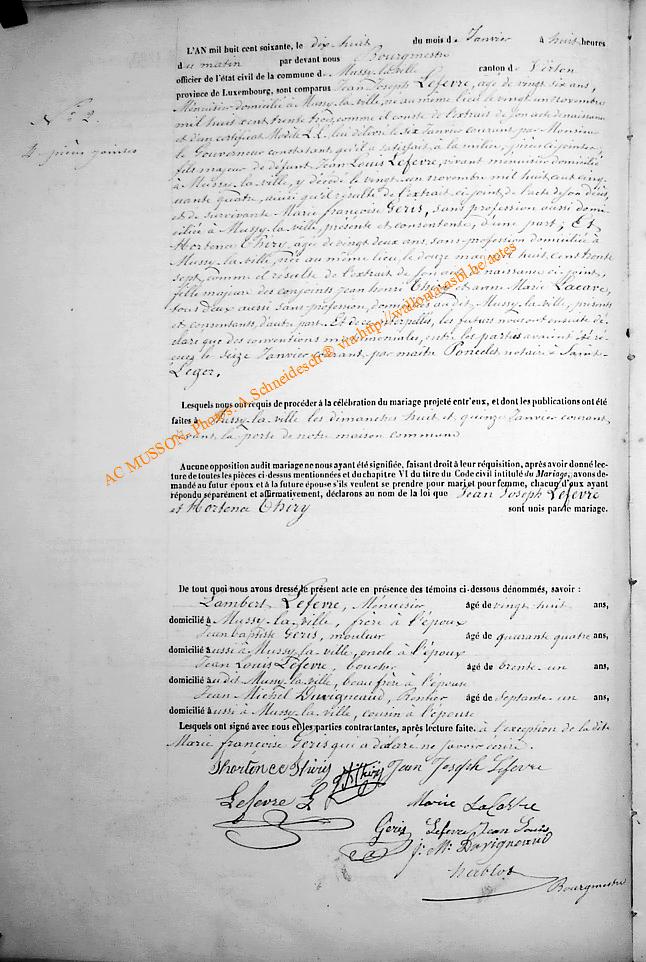 L'AN mil huit cent soixante, le dix huit du mois de Janvier à huit heures
du matin par devant nous Bourgmestre
officier de l'état civil de la commune de Mussy-la-ville canton de Virton
province de Luxembourg, sont comparus Jean Joseph Lefevre, âgé de vingt six ans,
Ménuisier domicilié à Mussy-la-ville, né au même lieu le vingt un novembre
mil huit cent trente trois, comme il conste de l'extrait de son acte de naissance
et d'un certificat Modèle LL. lui délivré le six Janvier courant par Monsieur
le Gouverneur constatant qu'il a satisfait à la milice, pièces ci jointes,
fils majeur de défunt Jean Louis Lefevre, vivant menuisier domicilié
à Mussy-la-ville, y décédé le vingt un novembre mil huit cent cinq
uante quatre, ainsi qu'il résulte de l'extrait ci joint de l'acte de son décès,
et de survivante Marie françoise Geris, sans profession aussi domi
ciliée à Mussy-la-ville, présente et consentente, d'une part; Et
Hortence Thiry, âgée de vingt deux ans, sans profession domiciliée à
Mussy-la-ville, née au même lieu, le douze mars mil huit cent trente
sept, comme il résulte de l'extrait de son acte de naissance ci joint,
fille majeure des conjoints jean henri Thiry et anne Marie Lacave,
tous deux aussi sans profession, domiciliés audit Mussy-la-ville, présents
et consentants, d'autre part. Et de ce interpellés, les futurs nous ont ensuite dé
claré que des conventions matrimoniales, entre les parties avaient été ré
cues le seize Janvier courant, par maître Poncelet notaire à Saint-
Leger.
N° 2.
4 pièces jointes
Lesquels nous ont requis de procéder à la célébration du mariage projeté entr'eux, et dont les publications ont été
faites à Mussy-la-ville les dimanches huit et quinze Janvier courant
devant la porte de notre maison commune
Aucune opposition audit mariage ne nous ayant été signifiée, faisant droit à leur réquisition, après avoir donné lec-
ture de toutes les pièces ci-dessus mentionnées et du chapitre VI du titre du Code civil intitulé du Mariage, avons de-
mandé au futur époux et à la future épouse s'ils veulent se prendre pour mari et pour femme, chacun d'eux ayant
répondu séparément et affirmativement, déclarons au nom de la loi que Jean Joseph Lefevre
et Hortence Thiry sont unis par le mariage.
De tout quoi nous avons dressé le présent acte en présence des témoins ci-dessous dénommés, savoir :
Lambert Lefevre, Ménuisier âgé de vingt huit ans,
domicilié à Mussy-la-ville, frère à l'époux
Jean baptiste Geris, mouleur âgé de quarante quatre ans,
domicilié aussi à Mussy-la-ville, oncle à l'époux
Jean Louis Lefevre, boucher âgé de trente un ans,
domicilié audit Mussy-la-ville, beau frère à l'épouse
Jean Michel Duvigneaud, Rentier âgé de septante un ans,
domicilié aussi à Mussy-la-ville, cousin à l'épouse
Lesquels ont signé avec nous et les parties contractantes, après lecture faite. à l'exception de la dite
Marie françoise Geris qui a déclaré ne savoir écrire.
hortence thiry Jean Joseph Lefevre
Lefevre L Marie LaCave
Geris Lefevre Jean Louis
j. Ml. Duvigneaud
herblot
Bourgmestre
AC MUSSON- Photos: A. Schneidesch® via http://wallonia-asbl.be/actes